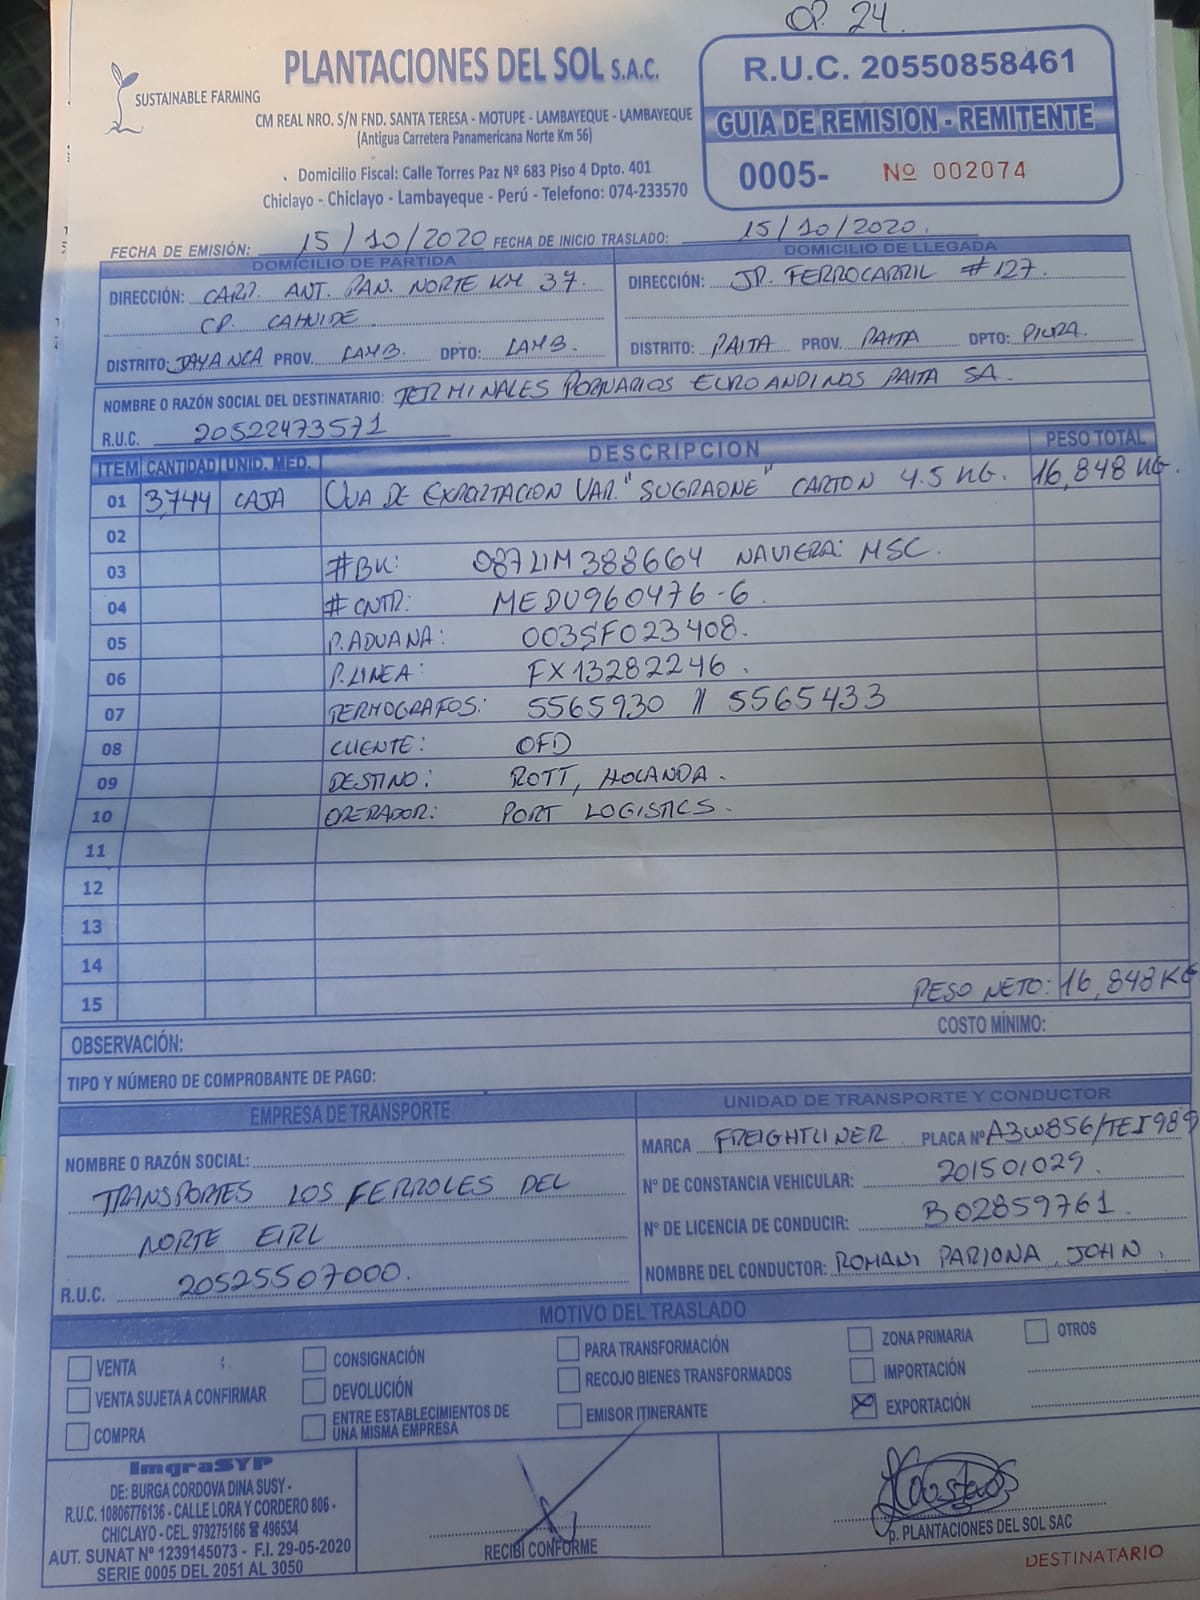 OP. 24.
SUSTAINABLE FARMING
PLANTACIONES DEL SOL S.A.C.
CM REAL NRO. S/N FND. SANTA TERESA - MOTUPE - LAMBAYEQUE - LAMBAYEQUE
(Antigua Carretera Panamericana Norte Km 56)
Domicilio Fiscal: Calle Torres Paz Nº 683 Piso 4 Dpto. 401
Chiclayo - Chiclayo - Lambayeque - Perú - Telefono: 074-233570
R.U.C. 20550858461
GUIA DE REMISION - REMITENTE
0005- Nº 002074
FECHA DE EMISIÓN: 15/10/2020 FECHA DE INICIO TRASLADO: 15/10/2020.
DOMICILIO DE PARTIDA
DIRECCIÓN: CARR. ANT. PAN. NORTE KM 37.
CP. CAHUIDE
DISTRITO: JAYANCA PROV. LAMB. DPTO: LAMB.
DOMICILIO DE LLEGADA
DIRECCIÓN: JR. FERROCARRIL #127.
DISTRITO: PAITA PROV. PAITA DPTO: PIURA.
NOMBRE O RAZÓN SOCIAL DEL DESTINATARIO: TERMINALES PORTUARIOS EUROANDINOS PAITA SA.
R.U.C. 20522473571
ITEM CANTIDAD UNID. MED. DESCRIPCION PESO TOTAL
01 3,744 CAJA UVA DE EXPORTACION VAR. "SUGRAONE" CARTON 4.5 KG. 16,848 KG.
02
03 #BK: 087LIM388664 NAVIERA: MSC.
04 # CNTR: MEDU960476-6.
05 P. ADUANA: 003SF023408.
06 P. LINEA: FX13282246.
07 TERMOGRAFOS: 5565930 // 5565433
08 CLIENTE: OFD
09 DESTINO: ROTT, HOLANDA.
10 OPERADOR: PORT LOGISTICS.
11
12
13
14
15 PESO NETO: 16,848KG
OBSERVACIÓN: COSTO MÍNIMO:
TIPO Y NÚMERO DE COMPROBANTE DE PAGO:
EMPRESA DE TRANSPORTE
NOMBRE O RAZÓN SOCIAL:
TRANSPORTES LOS FERROLES DEL
NORTE EIRL
R.U.C. 20525507000.
UNIDAD DE TRANSPORTE Y CONDUCTOR
MARCA FREIGHTLINER PLACA Nº A3W856/TEI989
Nº DE CONSTANCIA VEHICULAR: 201501029.
Nº DE LICENCIA DE CONDUCIR: B02859761.
NOMBRE DEL CONDUCTOR: ROMANI PARIONA, JOHN.
MOTIVO DEL TRASLADO
VENTA CONSIGNACIÓN PARA TRANSFORMACIÓN ZONA PRIMARIA OTROS
VENTA SUJETA A CONFIRMAR DEVOLUCIÓN RECOJO BIENES TRANSFORMADOS IMPORTACIÓN
COMPRA ENTRE ESTABLECIMIENTOS DE UNA MISMA EMPRESA EMISOR ITINERANTE EXPORTACIÓN
ImgraSYP
DE: BURGA CORDOVA DINA SUSY -
R.U.C. 10806776136 - CALLE LORA Y CORDERO 806 -
CHICLAYO - CEL. 979275166 ☎ 496534
AUT. SUNAT Nº 1239145073 - F.I. 29-05-2020
SERIE 0005 DEL 2051 AL 3050
RECIBÍ CONFORME
p. PLANTACIONES DEL SOL SAC
DESTINATARIO